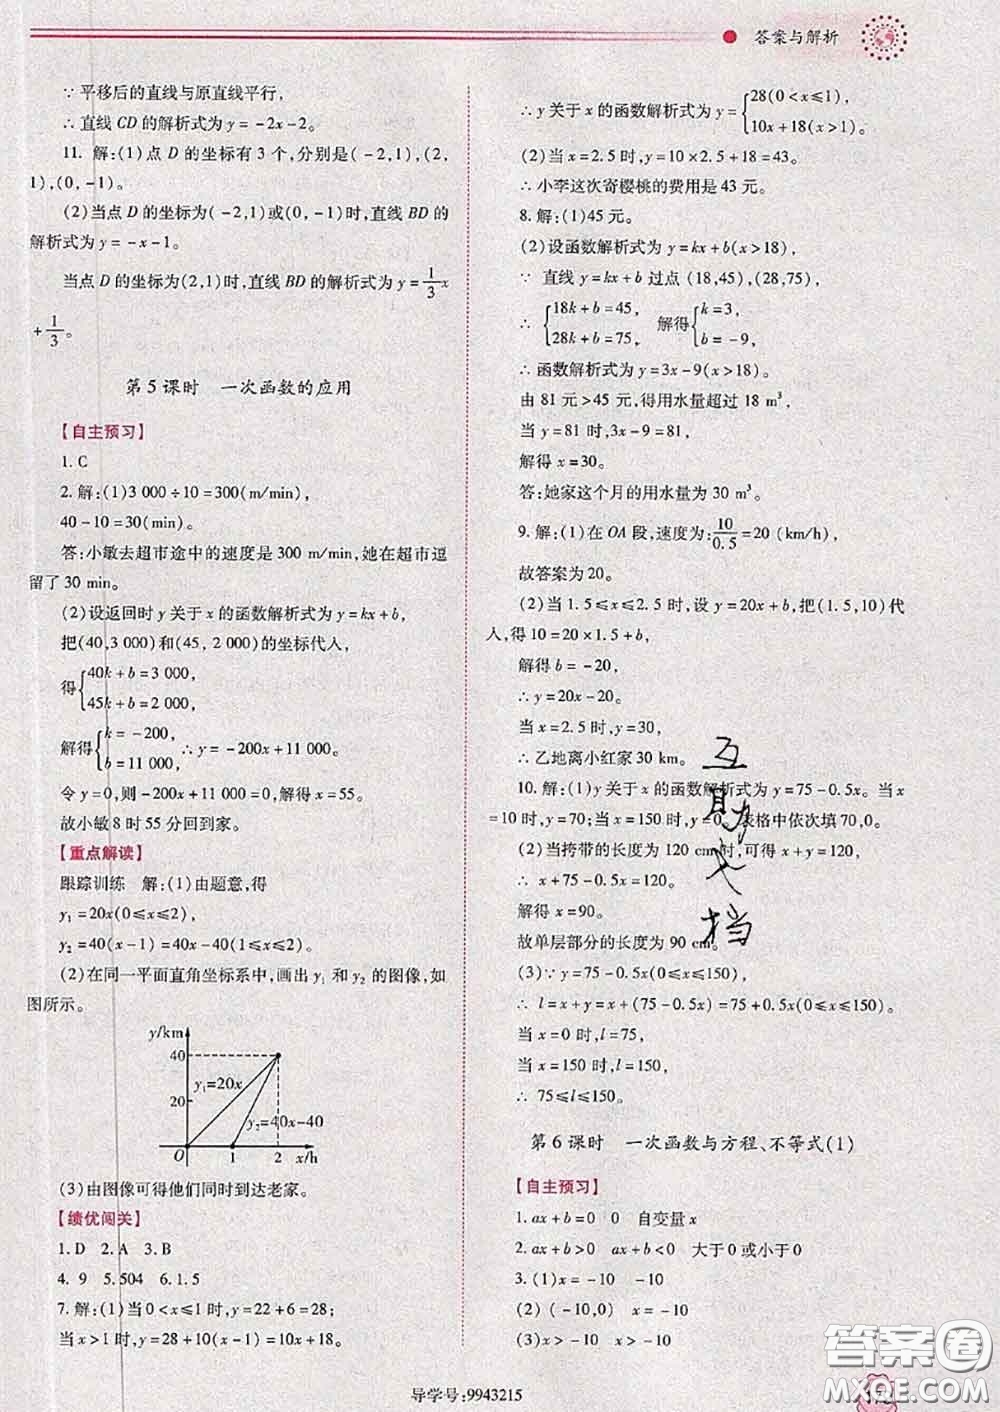 答案与解析
∵平移后的直线与原直线平行，
∴直线CD的解析式为y=-2x-2。
11. 解:(1)点D的坐标有3个,分别是(-2,1),(2,
1),(0,-1)。
(2)当点D的坐标为(-2,1)或(0,-1)时,直线BD的
解析式为y=-x-1。
当点D的坐标为(2,1)时,直线BD的解析式为y=1/3x
+1/3。
第5课时 一次函数的应用
【自主预习】
1. C
2. 解:(1)3 000÷10=300(m/min),
40-10=30(min)。
答:小敏去超市途中的速度是300 m/min,她在超市逗
留了30 min。
(2)设返回时y关于x的函数解析式为y=kx+b,
把(40,3 000)和(45, 2 000)的坐标代人,
得{40k+b=3 000,
45k+b=2 000,
解得{k=-200,
b=11 000, ∴y=-200x+11 000。
令y=0,则-200x+11 000=0,解得x=55。
故小敏8时55分回到家。
【重点解读】
跟踪训练 解:(1)由题意,得
y₁=20x(0≤x≤2),
y₂=40(x-1)=40x-40(1≤x≤2)。
(2)在同一平面直角坐标系中,画出y₁和y₂的图像,如
图所示。
y/km
40
y₁=20x
20
y₂=40x-40
O 1 2 x/h
(3)由图像可得他们同时到达老家。
【绩优闯关】
1. D 2. A 3. B
4. 9 5.504 6.1.5
7. 解:(1)当0<x≤1时,y=22+6=28;
当x>1时,y=28+10(x-1)=10x+18。
∴y关于x的函数解析式为y={28(0<x≤1),
10x+18(x>1)。
(2)当x=2.5时,y=10×2.5+18=43。
∴小李这次寄樱桃的费用是43元。
8. 解:(1)45元。
(2)设函数解析式为y=kx+b(x>18),
∵ 直线y=kx+b过点(18,45),(28,75),
∴ {18k+b=45, 解得{k=3,
28k+b=75, b=-9,
∴函数解析式为y=3x-9(x>18)。
由81元>45元,得用水量超过18 m³,
当y=81时,3x-9=81,
解得x=30。
答:她家这个月的用水量为30 m³。
9. 解:(1)在OA段,速度为:10/0.5=20 (km/h)
故答案为20。
(2)当1.5≤x≤2.5时,设y=20x+b,把(1.5,10)代
人,得10=20×1.5+b,
解得b=-20,
∴y=20x-20。
当x=2.5时,y=30,
∴乙地离小红家30 km。
10. 解:(1)y关于x的函数解析式为y=75-0.5x。当x
=10时,y=70;当x=150时,y=0。表格中依次填70,0。
(2)当挎带的长度为120 cm时,可得x+y=120,
∴ x+75-0.5x=120。
解得x=90。
故单层部分的长度为90 cm。
(3)∵y=75-0.5x(0≤x≤150),
∴ l=x+y=x+(75-0.5x)=75+0.5x(0≤x≤150)。
当x=0时,l=75,
当x=150时,l=150。
∴ 75≤l≤150。
第6课时 一次函数与方程、不等式(1)
【自主预习】
1. ax+b=0 0 自变量x
2. ax+b>0 ax+b<0 大于0或小于0
3. (1)x=-10 -10
(2) (-10,0) x=-10
(3)x>-10 x>-10
互助文档
导学号:9943215
答案圈
MXQE.COM